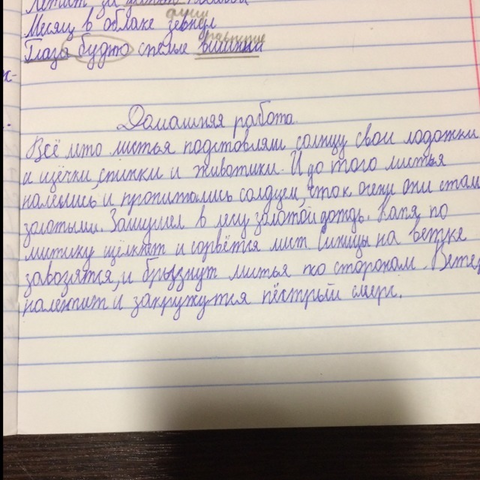 Летит за
душу
Месяц в облаке зевнул
Глаза будто спелые вишни
Домашняя работа.
Всё лето листья подставляли солнцу свои ладошки
и щёчки, спинки и животики. И до того листья
налились и пропитались солнцем, что к осени они стали
золотыми. Зашумел в лесу золотой дождь. Капля по
листику щёлкнет и сорвётся лист. Синицы на ветке
завозятся, и брызнут листья по сторонам. Ветер
налетит и закружится пёстрый смерч.